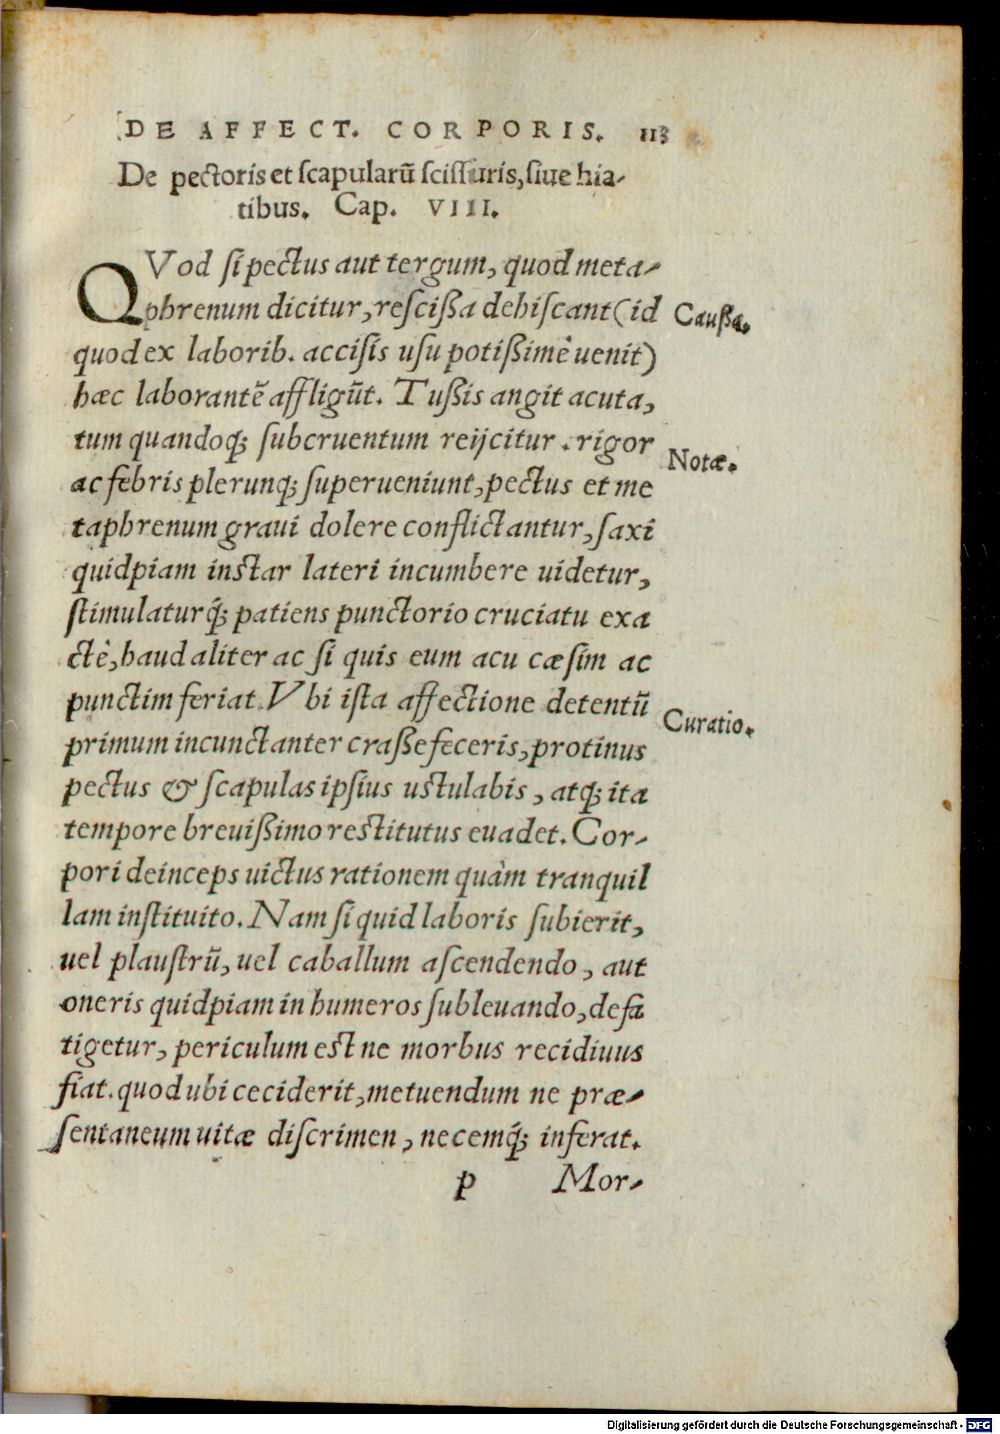 DE AFFECT. CORPORIS. 113
De pectoris et scapularū scissuris, siue hia-
tibus. Cap. VIII.
QVod si pectus aut tergum, quod meta-
phrenum dicitur, rescißa dehiscant (id
Caußa.
quod ex laborib. accisis usu potißimè uenit)
hæc laborantē affligūt. Tußis angit acuta,
tum quandoq; subcruentum reijcitur. rigor
Notæ.
ac febris plerunq; superueniunt, pectus et me
taphrenum graui dolere conflictantur, saxi
quidpiam instar lateri incumbere uidetur,
stimulaturq́; patiens punctorio cruciatu exa
ctè, haud aliter ac si quis eum acu cæsim ac
punctim feriat. Vbi ista affectione detentū
Curatio.
primum incunctanter craßefeceris, protinus
pectus & scapulas ipsius ustulabis, atq; ita
tempore breuißimo restitutus euadet. Cor-
pori deinceps uictus rationem quàm tranquil
lam instituito. Nam si quid laboris subierit,
uel plaustrū, uel caballum ascendendo, aut
oneris quidpiam in humeros subleuando, defa
tigetur, periculum est ne morbus recidiuus
fiat. quod ubi ceciderit, metuendum ne præ-
sentaneum uitæ discrimen, necemq́; inferat.
p Mor-
Digitalisierung gefördert durch die Deutsche Forschungsgemeinschaft - DFG